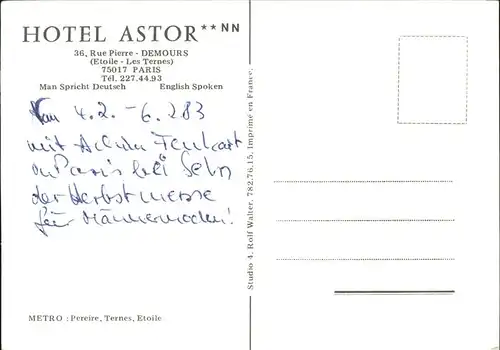 HOTEL ASTOR ** NN
36, Rue Pierre - DEMOURS
(Etoile - Les Ternes)
75017 PARIS
Tél. 227.44.93
Man Spricht Deutsch English Spoken
4.2. - 6.2.83
mit Achim
in Paris bei
der Herbstmesse
für Männermoden!
METRO : Pereire, Ternes, Etoile
Studio 4, Rolf Walter, 782.76.15, Imprimé en France.